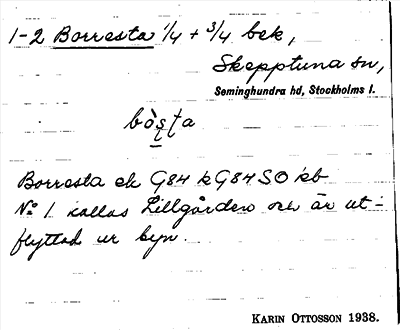 1-2 Borresta 1/4 + 3/4 bek,
Skepptuna sn,
Seminghundra hd, Stockholms l.
bòsta
Borresta ek G84 k G84 SO kb
No 1 kallas Lillgården och är ut-
flyttad ur byn.
KARIN OTTOSSON 1938.